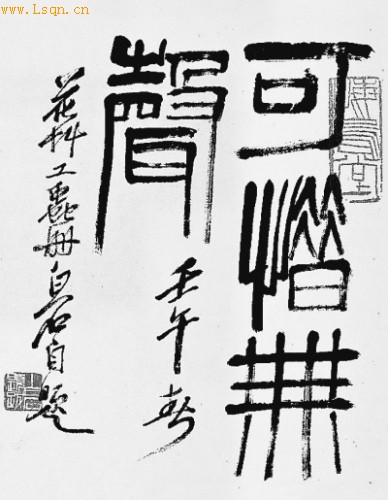 www.Lsqn.cn
悔烏堂
可惜無
聲
壬午春
花艸工蟲冊白石自題